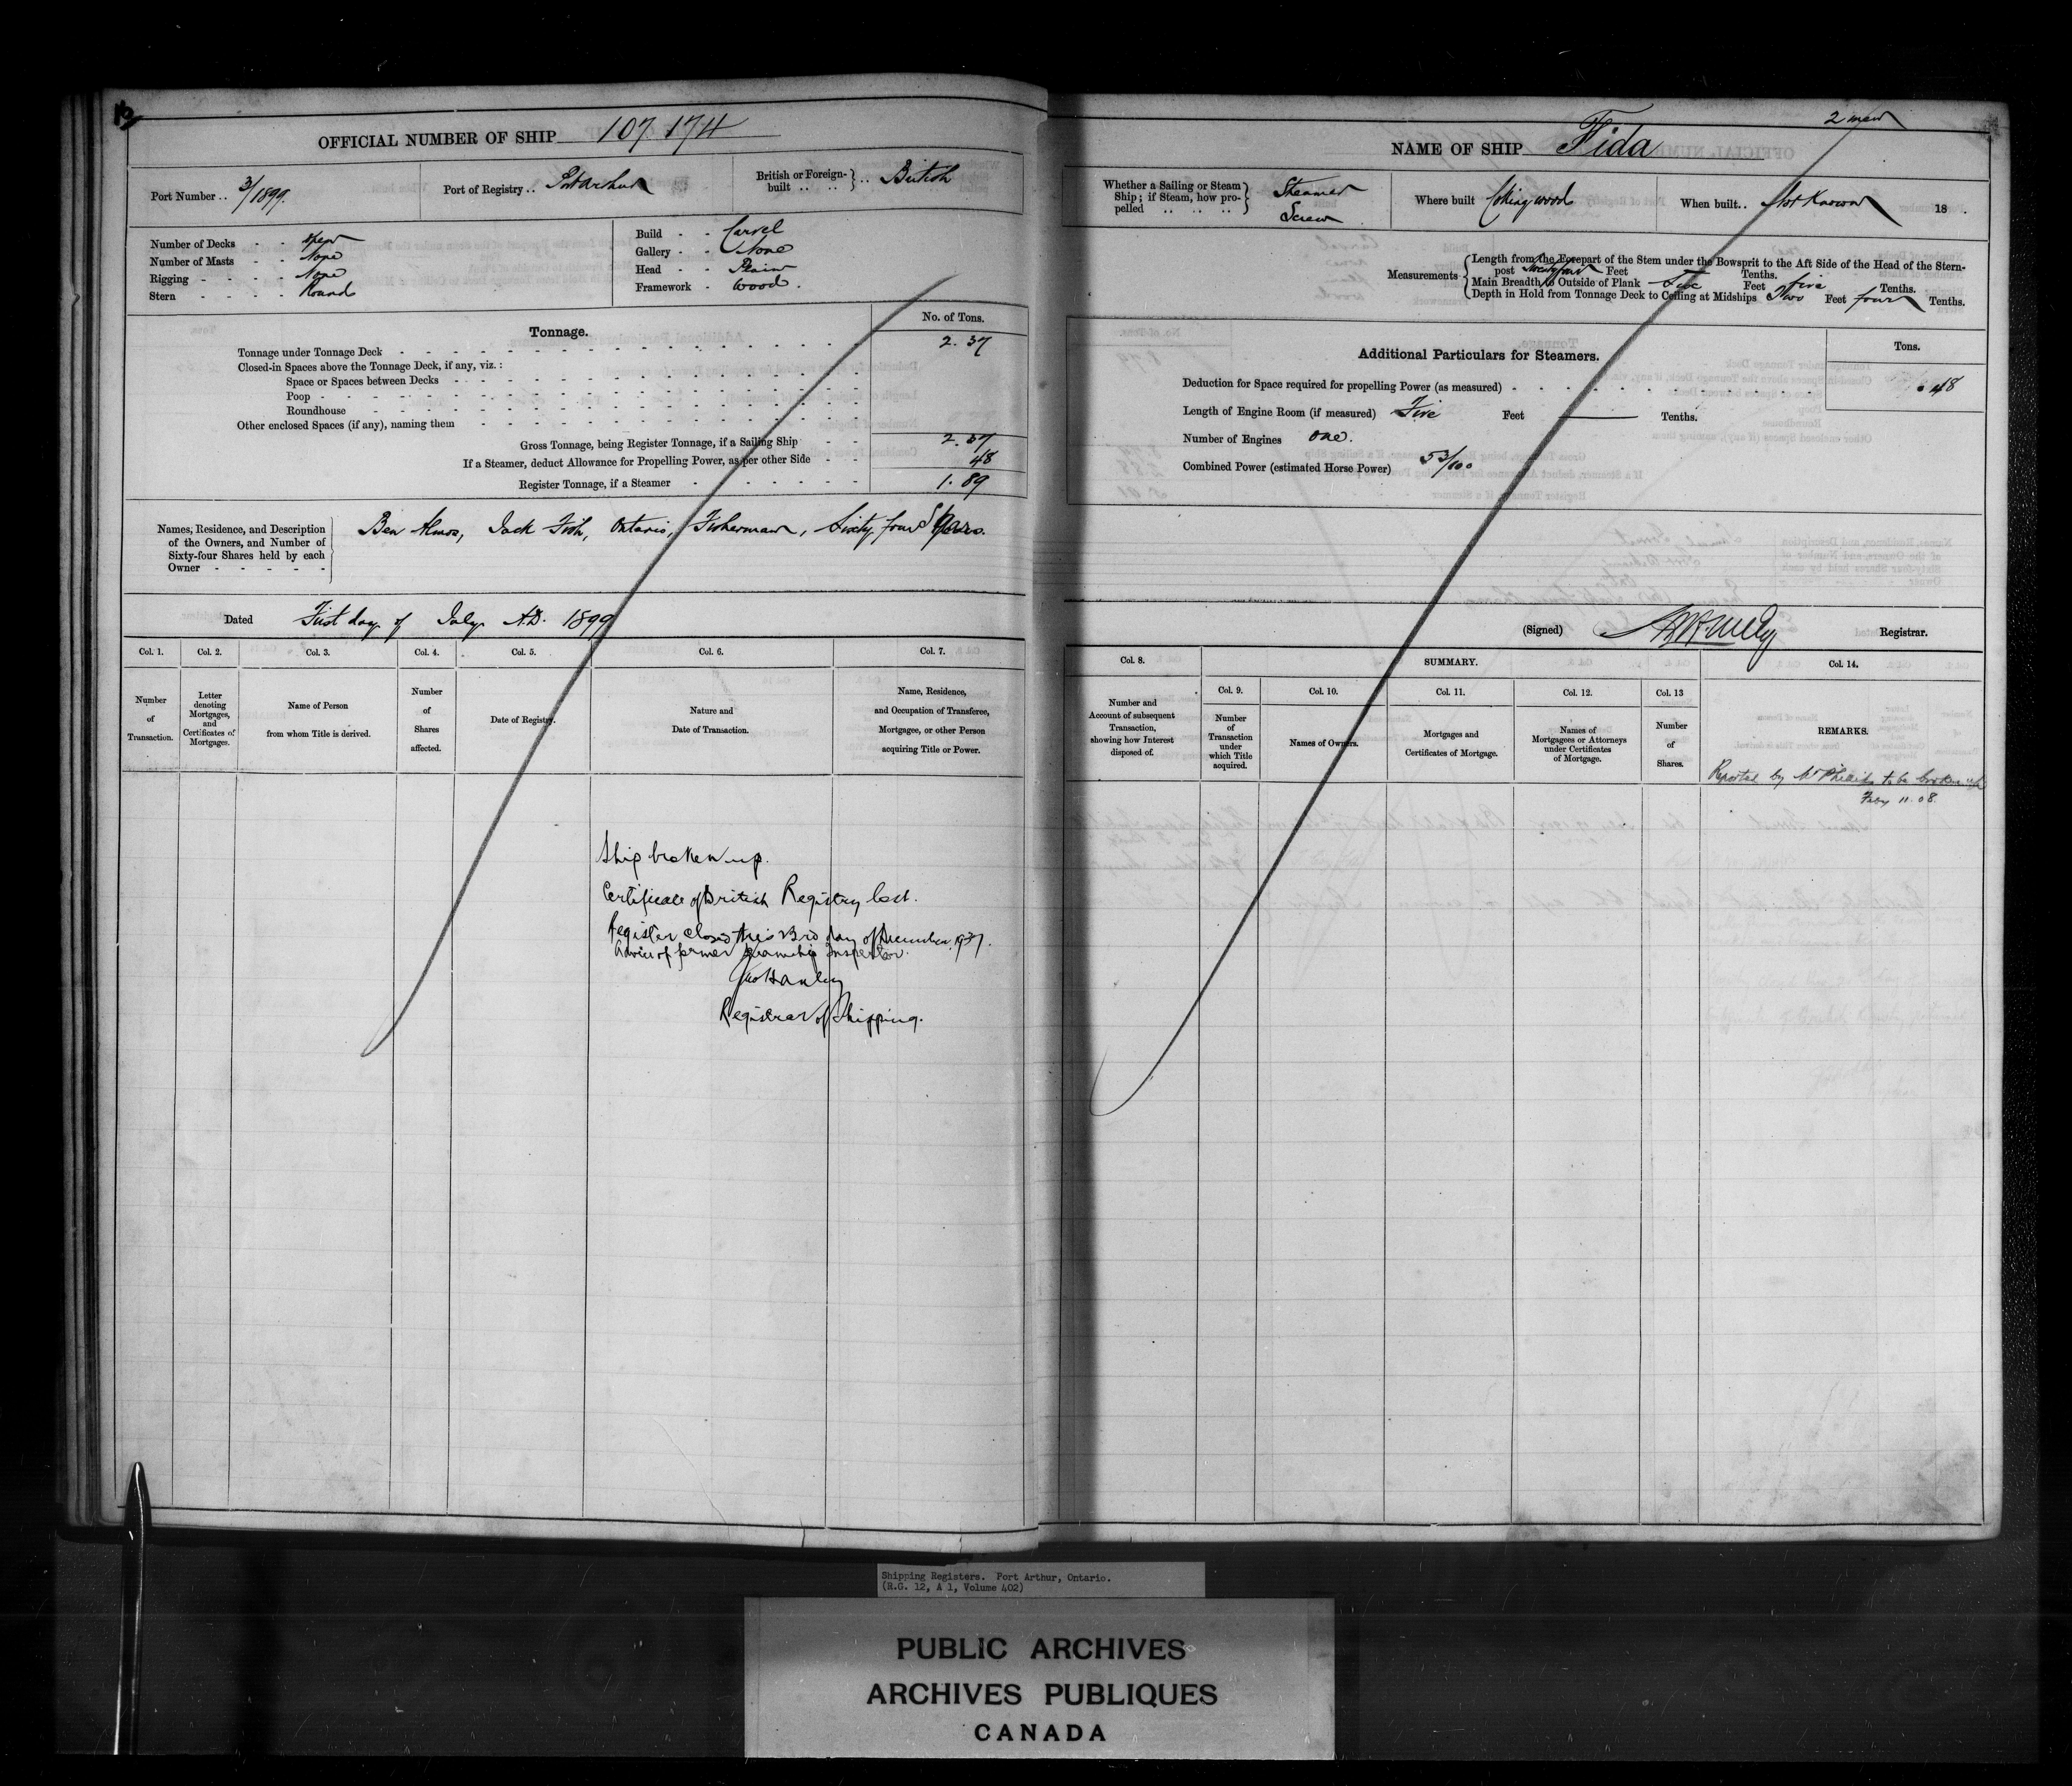 OFFICIAL NUMBER OF SHIP 107.174
Port Number .. 3/1899.
Port of Registry .. Port Arthur
British or Foreign-built .. .. } .. British
Number of Decks - - open
Number of Masts - - None
Rigging - - - - None
Stern - - - - Round
Build - - Carvel
Gallery - - None
Head - - Plain
Framework - Wood.
Tonnage.
No. of Tons.
Tonnage under Tonnage Deck 2.37
Closed-in Spaces above the Tonnage Deck, if any, viz.:
Space or Spaces between Decks
Poop
Roundhouse
Other enclosed Spaces (if any), naming them
Gross Tonnage, being Register Tonnage, if a Sailing Ship 2.37
If a Steamer, deduct Allowance for Propelling Power, as per other Side 48
Register Tonnage, if a Steamer 1.89
Names, Residence, and Description of the Owners, and Number of Sixty-four Shares held by each Owner
Ben Jack Fish, Ontario, Fisherman, Sixty four Shares.
Dated First day of July A.D. 1899
Col. 1. Col. 2. Col. 3. Col. 4. Col. 5. Col. 6. Col. 7.
Number of Transaction.
Letter denoting Mortgages, and Certificates of Mortgages.
Name of Person from whom Title is derived.
Number of Shares affected.
Date of Registry.
Nature and Date of Transaction.
Name, Residence, and Occupation of Transferee, Mortgagee, or other Person acquiring Title or Power.
Ship broken up.
Certificate of British Registry lost.
Register closed this 23rd day of December 1937.
Advice of former Steamship Inspector.
Registrar of Shipping.
2 men
NAME OF SHIP Fida
Whether a Sailing or Steam Ship; if Steam, how propelled } Steamer Screw
Where built Collingwood
When built.. Not Known 18 .
Measurements
Length from the Forepart of the Stem under the Bowsprit to the Aft Side of the Head of the Stern-
post Twenty four Feet Tenths.
Main Breadth to Outside of Plank Five Feet five Tenths.
Depth in Hold from Tonnage Deck to Ceiling at Midships Two Feet four Tenths.
Additional Particulars for Steamers.
Tons.
Deduction for Space required for propelling Power (as measured) .48
Length of Engine Room (if measured) Five Feet — Tenths.
Number of Engines one.
Combined Power (estimated Horse Power) 53/100
(Signed) Registrar.
Col. 8.
SUMMARY.
Col. 14.
Col. 9. Col. 10. Col. 11. Col. 12. Col. 13
Number and Account of subsequent Transaction, showing how Interest disposed of.
Number of Transaction under which Title acquired.
Names of Owners.
Mortgages and Certificates of Mortgage.
Names of Mortgagees or Attorneys under Certificates of Mortgage.
Number of Shares.
REMARKS.
Reported by Mr Phillips to be broken up
Feby 11.08.
Shipping Registers. Port Arthur, Ontario.
(R.G. 12, A 1, Volume 402)
PUBLIC ARCHIVES
ARCHIVES PUBLIQUES
CANADA